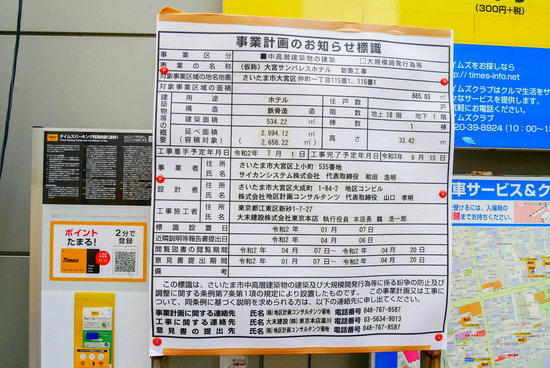 (300円+税)
事業計画のお知らせ標識
事業区分 ■中高層建築物の建築 □大規模開発行為等
事業の名称 (仮称)大宮サンパレスホテル 新築工事
対象事業区域の地名地番 さいたま市大宮区仲町一丁目115番1、116番1
対象事業区域の面積 665.03 ㎡
建築物等の概要
用途 ホテル 住戸数 戸
構造 鉄骨造 階数 地上10階 地下1階
建築面積 534.22 ㎡ 棟数 1棟
延べ面積 2,894.12 ㎡
(容積対象) ( 2,658.22 ㎡) 高さ 33.42 m
工事着手予定年月日 令和2年7月1日 工事完了予定年月日 令和3年9月15日
事業者 住所 さいたま市大宮区上小町 535番地
氏名 サイカンシステム株式会社 代表取締役 和田 浩明
設計者 住所 さいたま市大宮区大成町 1-84-2 地区コンビル
氏名 株式会社地区計画コンサルタンツ 代表取締役 山口 孝明
工事施工者 住所 東京都江東区新砂1-7-27
氏名 大末建設株式会社東京本店 執行役員 本店長 鶴 浩一郎
標識設置日 令和2年04月07日
近隣説明等報告書提出日 令和2年04月06日
閲覧図書の閲覧期間 令和2年04月07日~令和2年04月20日
意見書提出期間 令和2年04月07日~令和2年04月20日
備考
この標識は、さいたま市中高層建築物の建築及び大規模開発行為等に係る紛争の防止及び
調整に関する条例第7条第1項の規定により設置したものです。この事業計画又は工事に
ついて、同条例に基づく説明を求められる方は、以下の連絡先に申し出てください。
事業計画に関する連絡先 氏名 (株)地区計画コンサルタンツ菊地 電話番号 048-767-8587
工事に関する連絡先 氏名 大末建設(株)東京本店瀧川 電話番号 03-5634-9013
意見書の提出先 氏名 (株)地区計画コンサルタンツ菊地 電話番号 048-767-8587
タイムズパーキング利用約款(要約)
ポイント
たまる!
2分で
登録
Times
イムズをお探しなら
http://times-info.net
イムズクラブはクルマ生活をサ
々なサービスを提供します。
20-39-8924
車サービス&ク
受けるには、入場時の
お持ちください。